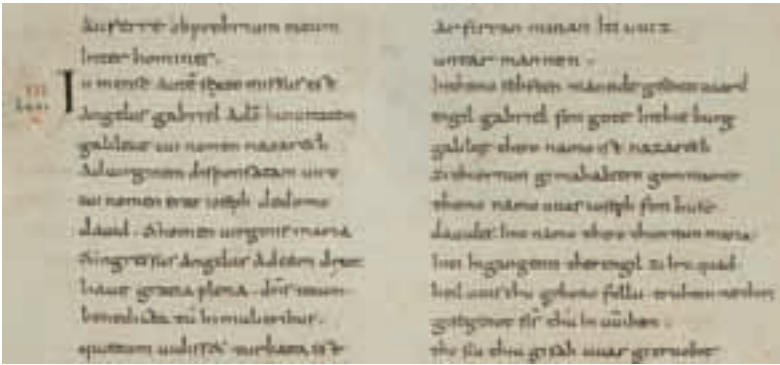 auferre obprobrium meum
inter homines.
In mense aut sexto missus est
angelus gabriel a dō in ciuitatem
galileae cui nomen nazareth
ad uirginem disponsatam uiro
cui nomen erat ioseph de domo
dauid. & nomen uirginis maria
& ingressus angelus ad eam dixit
haue gratia plena. dn̄s tecum
benedicta tu in mulieribus.
quae cum uidiss& turbata est
arfirran minan
untar mannon.
In themo sehsten manude uuard
engil gabriel fon gote In thie burg
thero namo ist nazareth
zi thiornun gommanne
themo namo uuas ioseph fon huse
dauides. Inti namo thero thiornun maria
Inti ingangenti ther engil zi iru quad
heil uuis thu gebono follu truhtin
gisegenot sīs thu in uuibon.
tho siu thiu gisah uuas